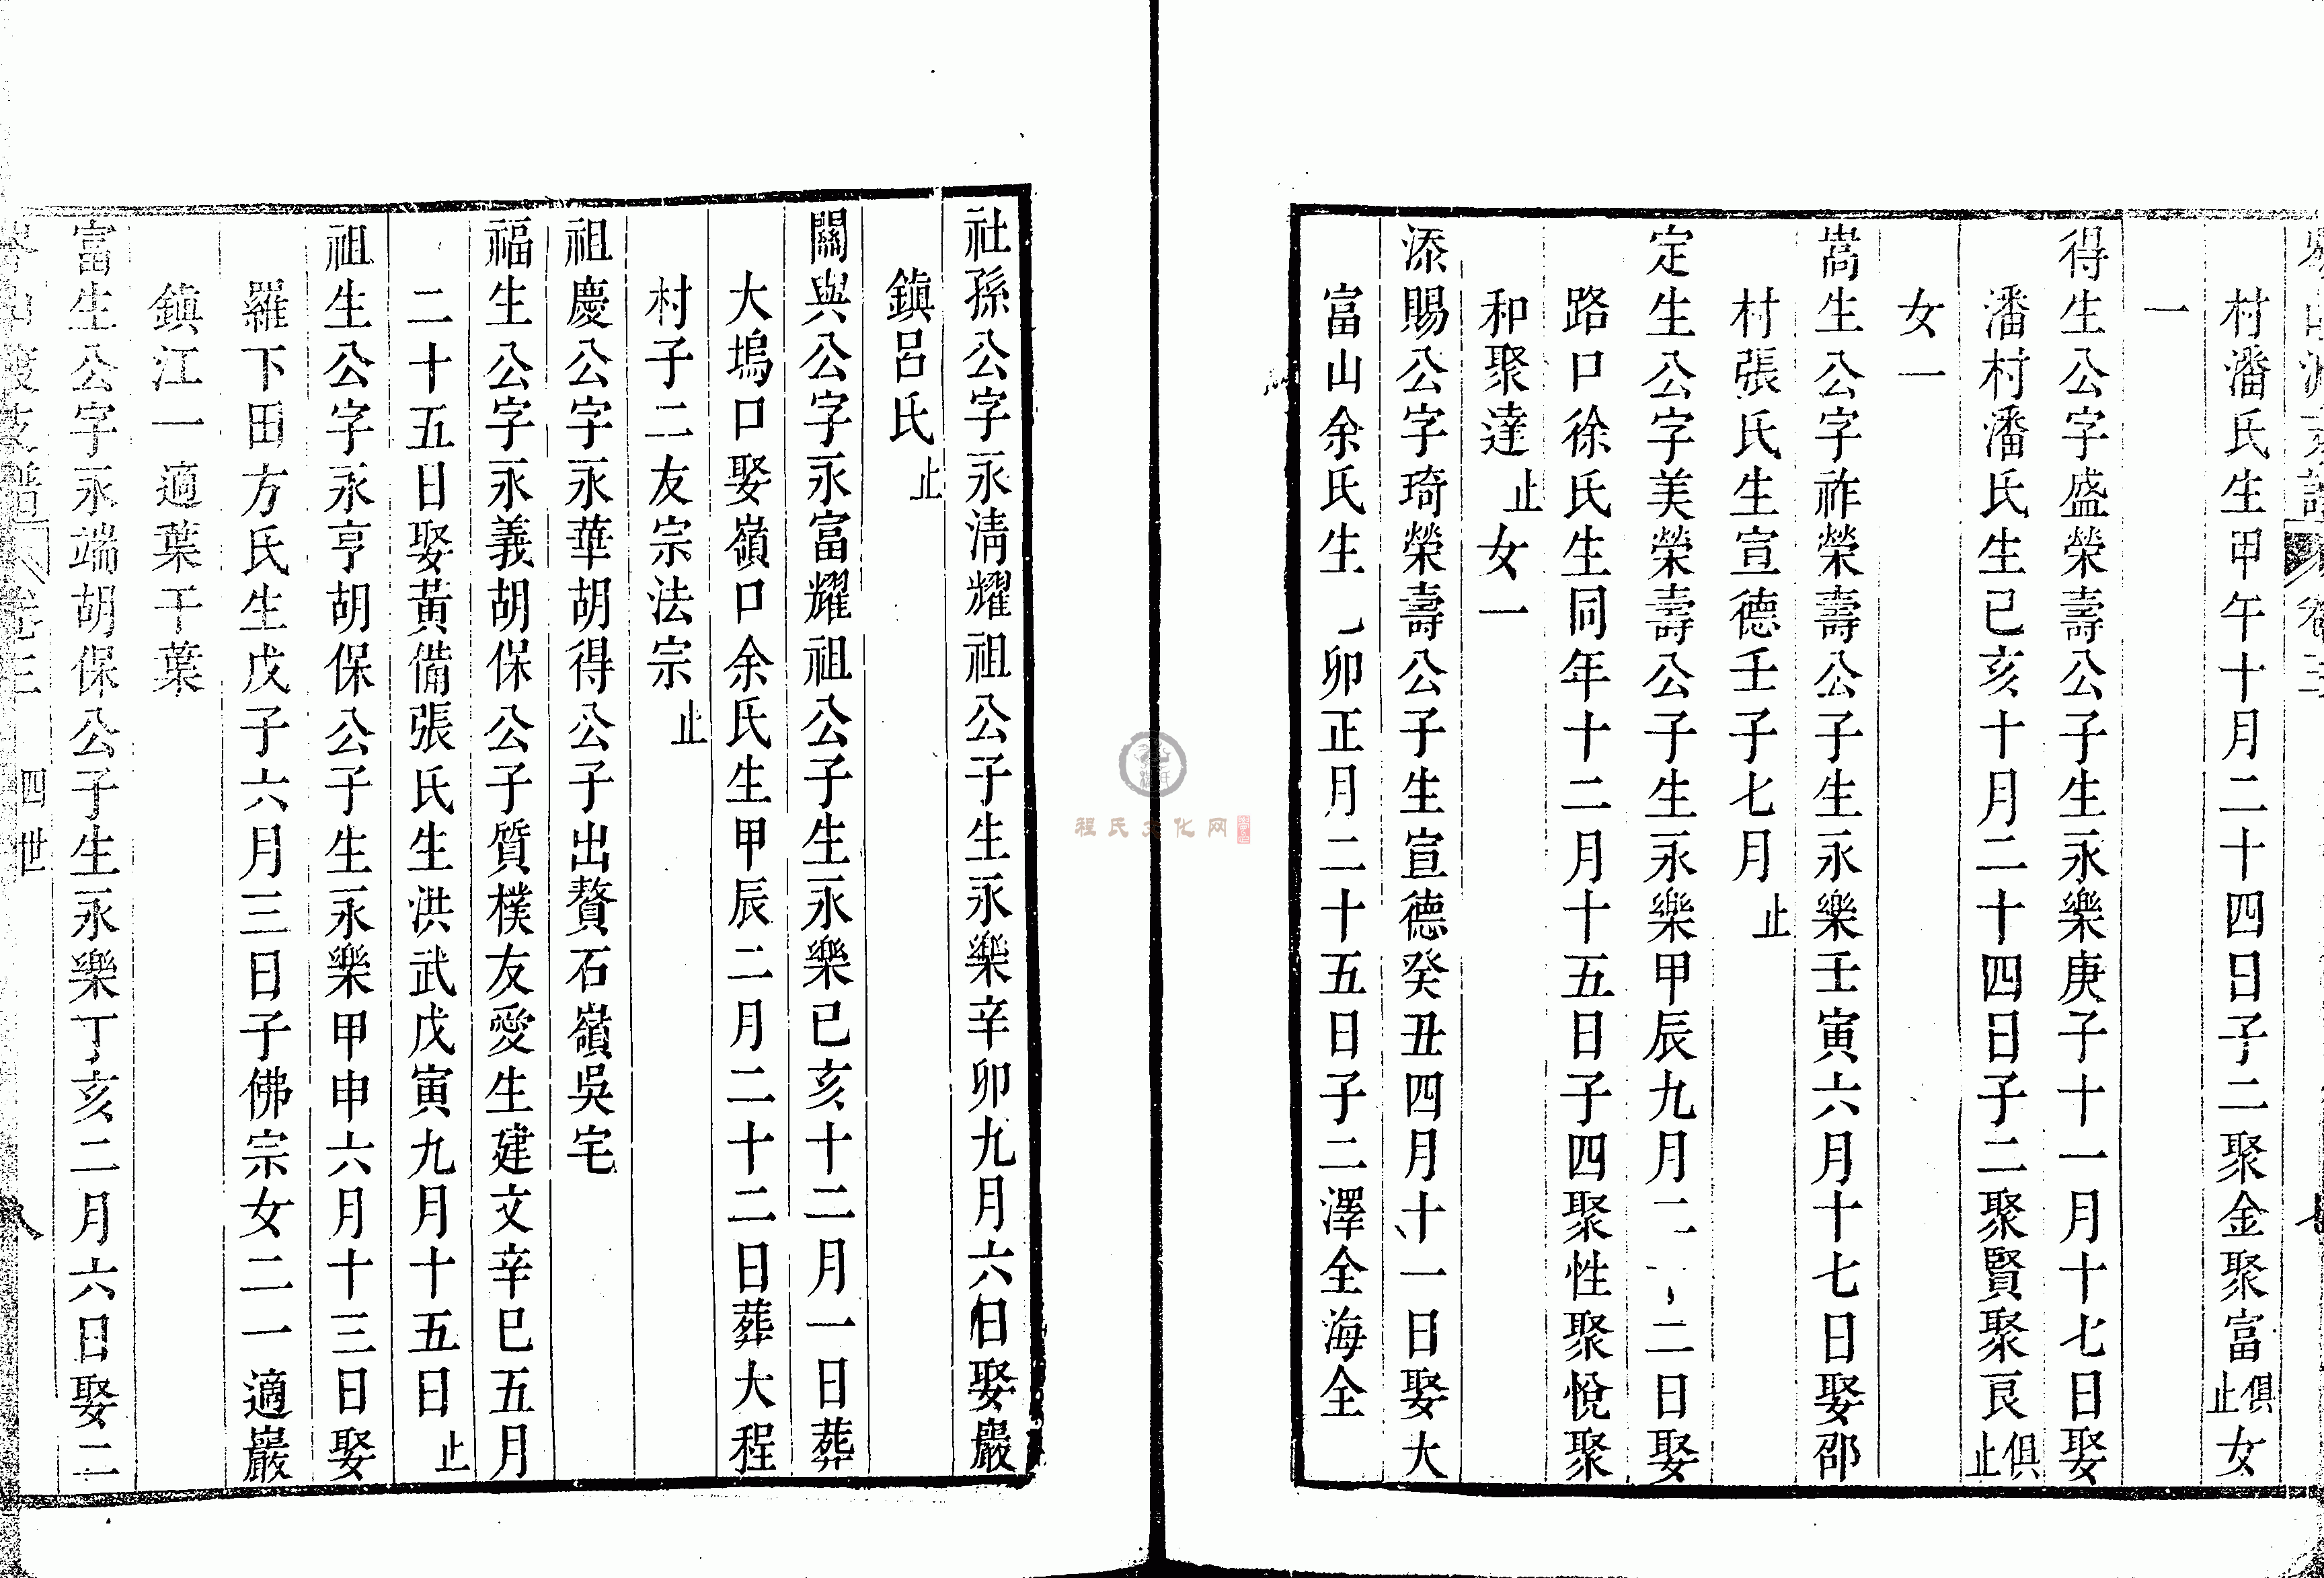 村潘氏生甲午十月二十四日子二聚金聚富俱止女
一
得生公字盛榮壽公子生永樂庚子十一月十七日娶
潘村潘氏生已亥十月二十四日子二聚賢聚良俱止
女一
嵩生公字祚榮壽公子生永樂壬寅六月十七日娶邵
村張氏生宣德壬子七月止
定生公字美榮壽公子生永樂甲辰九月二日娶
路口徐氏生同年十二月十五日子四聚性聚悅聚
和聚達止女一
添賜公字琦榮壽公子生宣德癸丑四月十一日娶大
富山余氏生卯正月二十五日子二澤全海全
社孫公字永淸耀祖公子生永樂辛卯九月六日娶嚴
鎮呂氏止
關與公字永富耀祖公子生永樂已亥十二月一日葬
大塢口娶嶺口余氏生甲辰二月二十二日葬大程
村子二友宗法宗止
祖慶公字永華胡得公子出贅石嶺吳宅
福生公字永義胡保公子質樸友愛生建文辛巳五月
二十五日娶黃備張氏生洪武戊寅九月十五日止
祖生公字永亨胡保公子生永樂甲申六月十三日娶
羅下田方氏生戊子六月三日子佛宗女二一適巖
鎮江一適葉干葉
富生公字永端胡保公子生永樂丁亥二月六日娶二
支譜 卷三 四世 八
程氏文化网